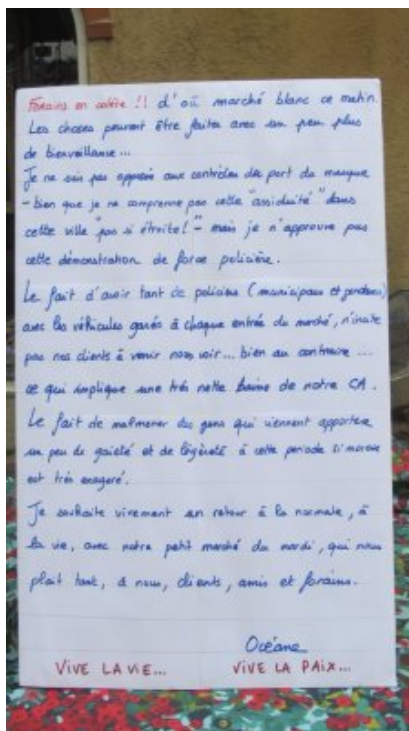 Forains en colère !! d'où marché blanc ce matin.
Les choses peuvent être faites avec un peu plus
de bienveillance...
Je ne suis pas opposée aux contrôles du port du masque
- bien que je ne comprenne pas cette "assiduité" dans
cette ville "pas si étroite!" - mais je n'approuve pas
cette démonstration de force policière.
Le fait d'avoir tant de policiers (municipaux et gendarmes)
avec les véhicules garés à chaque entrée du marché, n'incite
pas nos clients à venir nous voir... bien au contraire ...
ce qui implique une très nette baisse de notre CA.
Le fait de malmener des gens qui viennent apporter
un peu de gaieté et de légèreté à cette période si morose
est très exagéré.
Je souhaite vivement un retour à la normale, à
la vie, avec notre petit marché du mardi, qui nous
plait tant, à nous, clients, amis et forains.
Océane
VIVE LA VIE... VIVE LA PAIX...